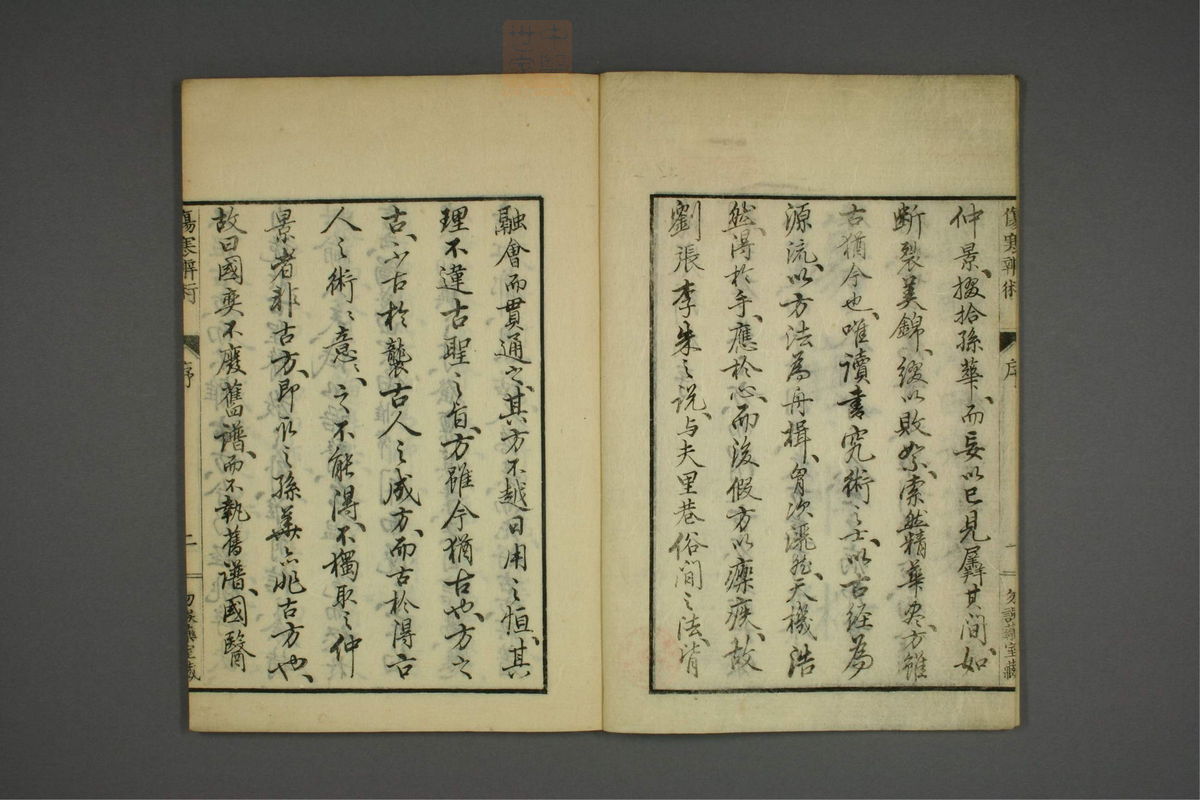 仲景、掇拾孫華、而妄以已見羼其间、如
断裂美錦、綴以敗絮、索然精華尽、方雖
古猶今也、唯讀書究術之士、以古経為
源流、以方法為舟楫、胷次灑然、天機浩
然、得於手、應於心、而後假方以療疾、故
劉張李朱之説、与夫里巷俗间之法、皆
傷寒辨術
序
一
融會而貫通之、其方不越日用之恒、其
理不違古聖之旨、方雖今猶古也、方之
古、不古於襲古人之成方、而古於得古
人之術、術、意、意之不能得、不獨取之仲
景者非古方、即取之孫華亦非古方也、
故曰國奕不廢舊谱、而不執舊谱、國醫
傷寒辨術
序
二